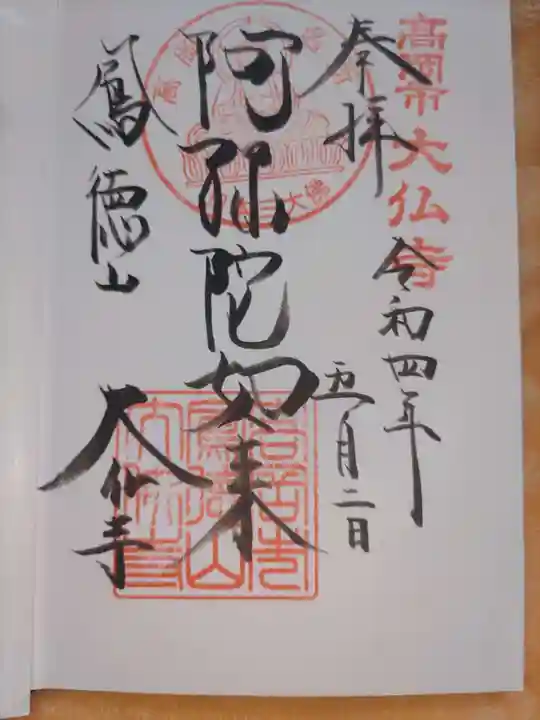 高岡市大仏寺
奉拝
令和四年
五月二日
阿弥陀如来
鳳徳山
大仏寺